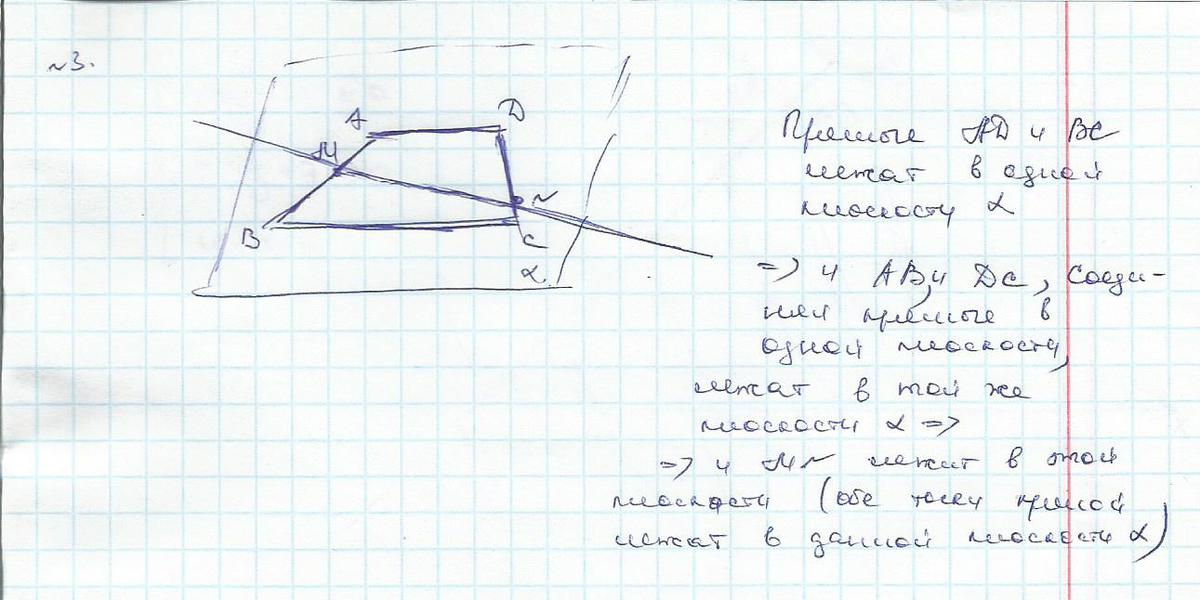 №3.
A
D
M
N
B
C
α
Прямые AD и BC
лежат в одной
плоскости α
=> и AB, и DC, соеди-
няя прямые в
одной плоскости,
лежат в той же
плоскости α =>
=> и MN лежит в этой
плоскости (обе точки прямой
лежат в данной плоскости α)